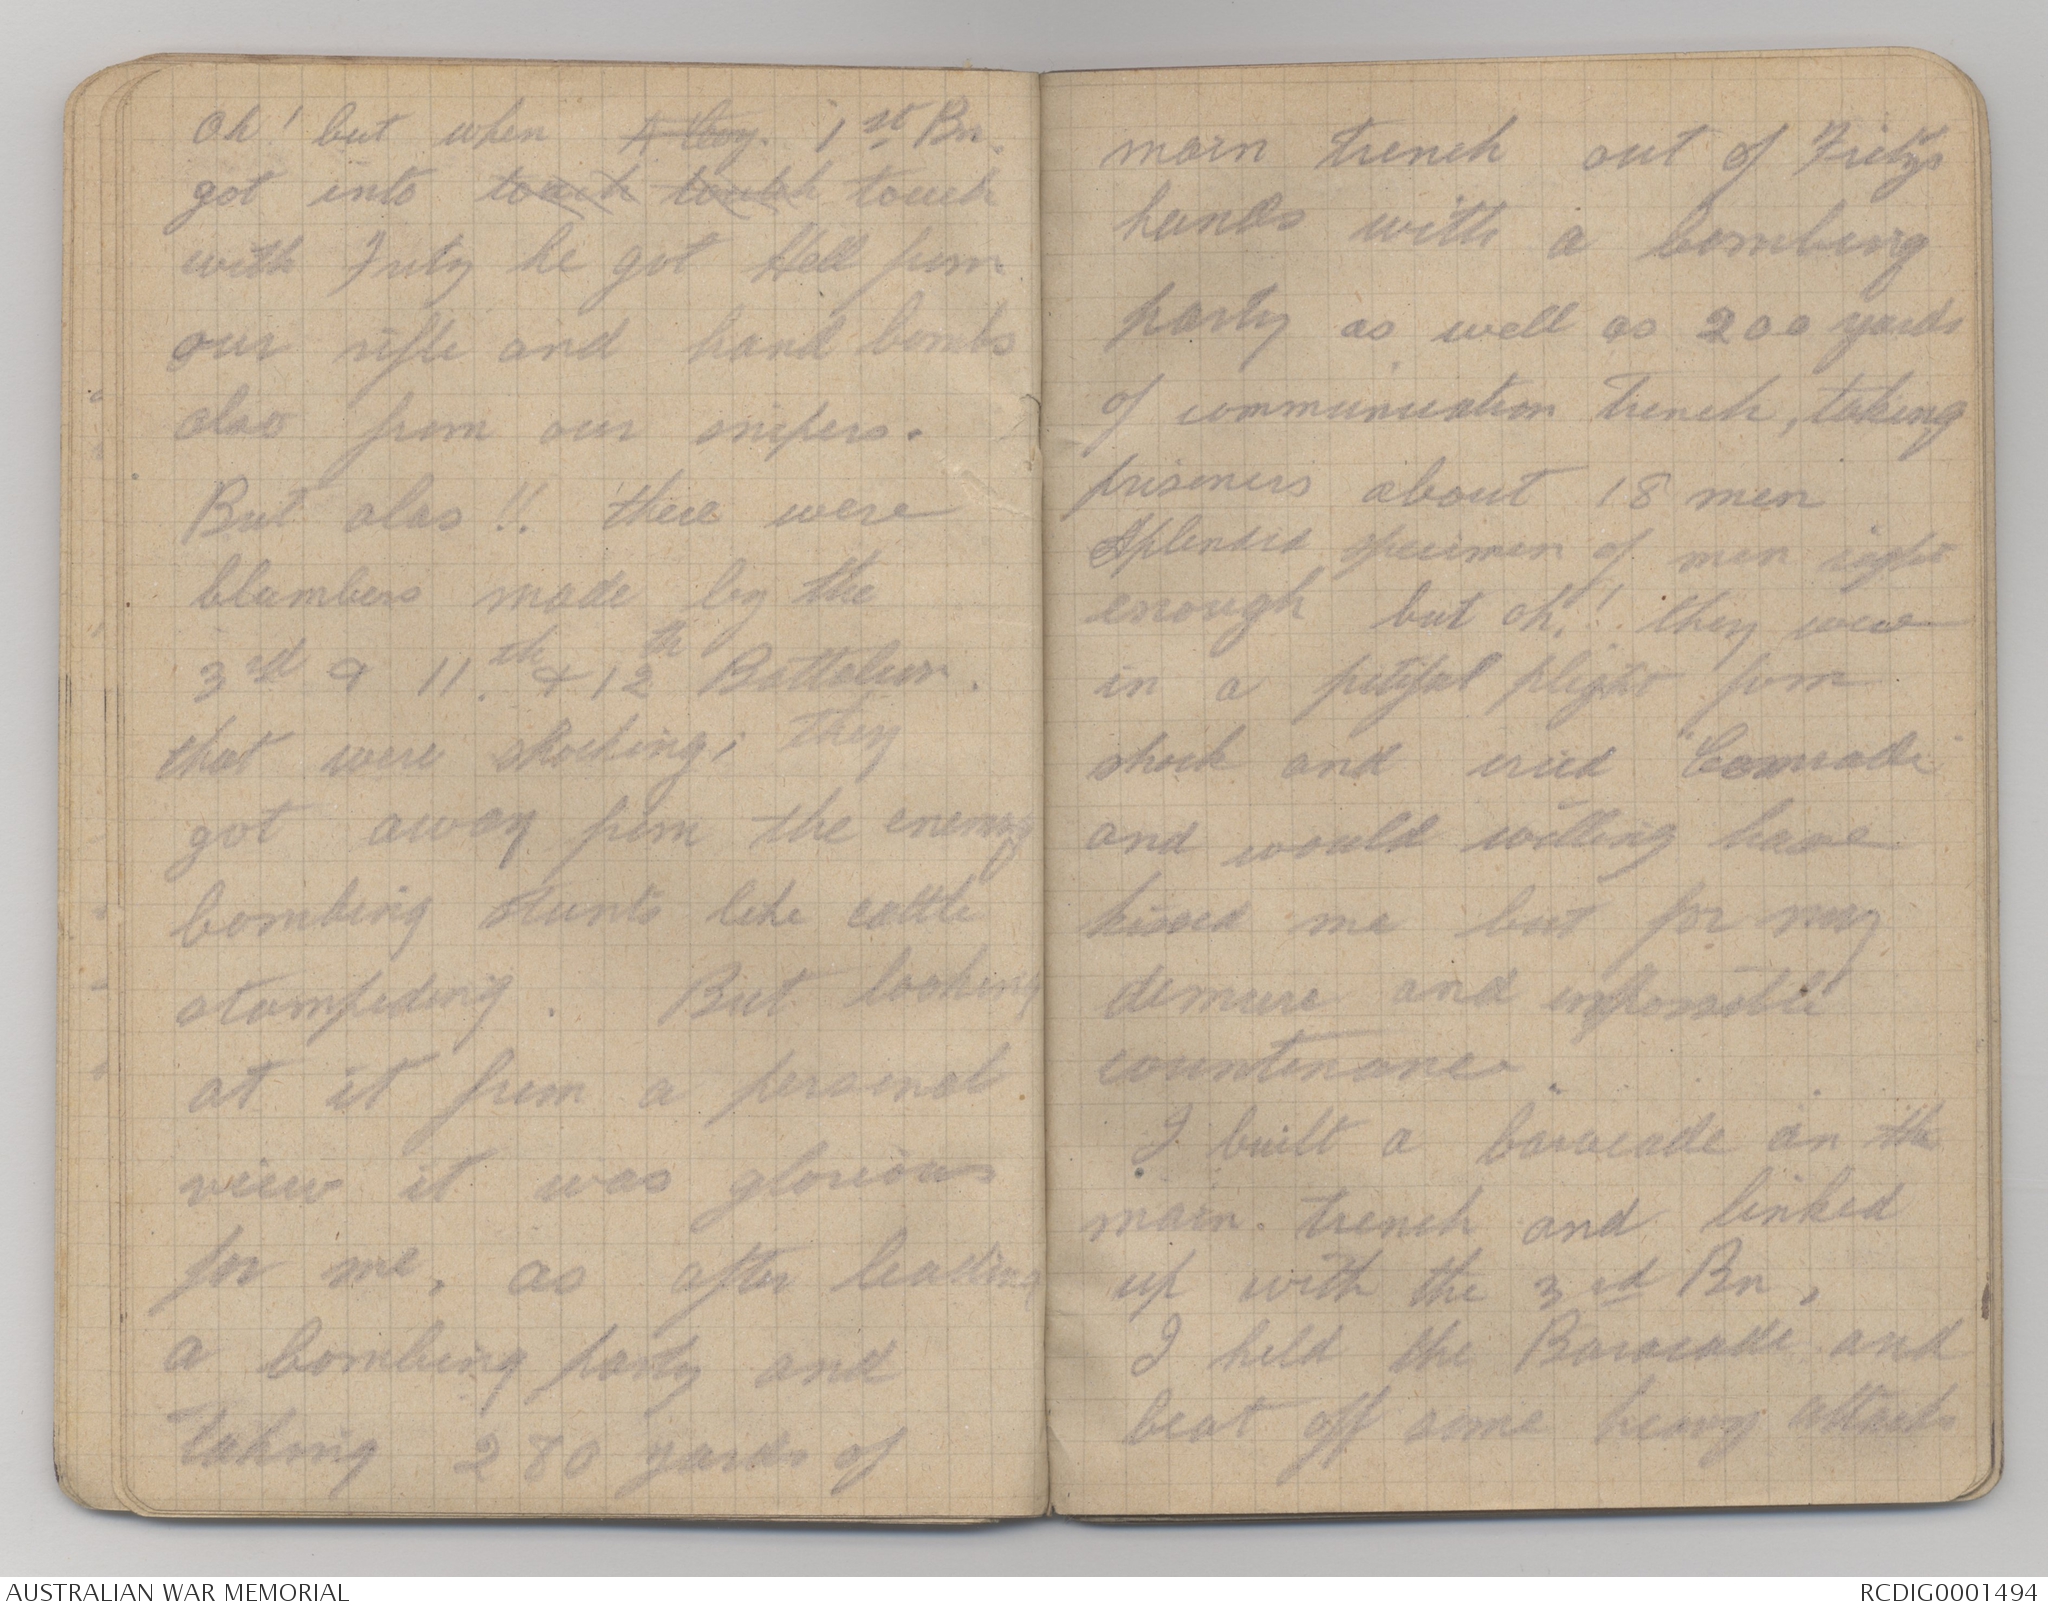 Oh! but when A Coy. 1st Bn.
got into touch touch touch
with Fritz he got Hell from
our rifle and hand bombs
also from our snipers.
But alas!!. there were
blumbers made by the
3rd & 11.th & 12th Battalion.
that were shocking; they
got away from the enemy
bombing stunts like cattle
stampeding. But looking
at it from a personal
view it was glorious
for me, as after leading
a bombing party and
taking 280 yards of
main trench out of Fritz's
hands with a bombing
party as well as 200 yards
of communication trench, taking
prisoners about 18 men
Splendid specimen of men right
enough but oh!!. they were
in a pitiful plight from
shock and cried "Comrade"
and would willing have
kissed me but for my
demure and impossible
countenance.
I built a baracade in the
main trench and linked
up with the 3rd Bn,
I held the Baracade and
beat off some heavy attacks
AUSTRALIAN WAR MEMORIAL
RCDIG0001494